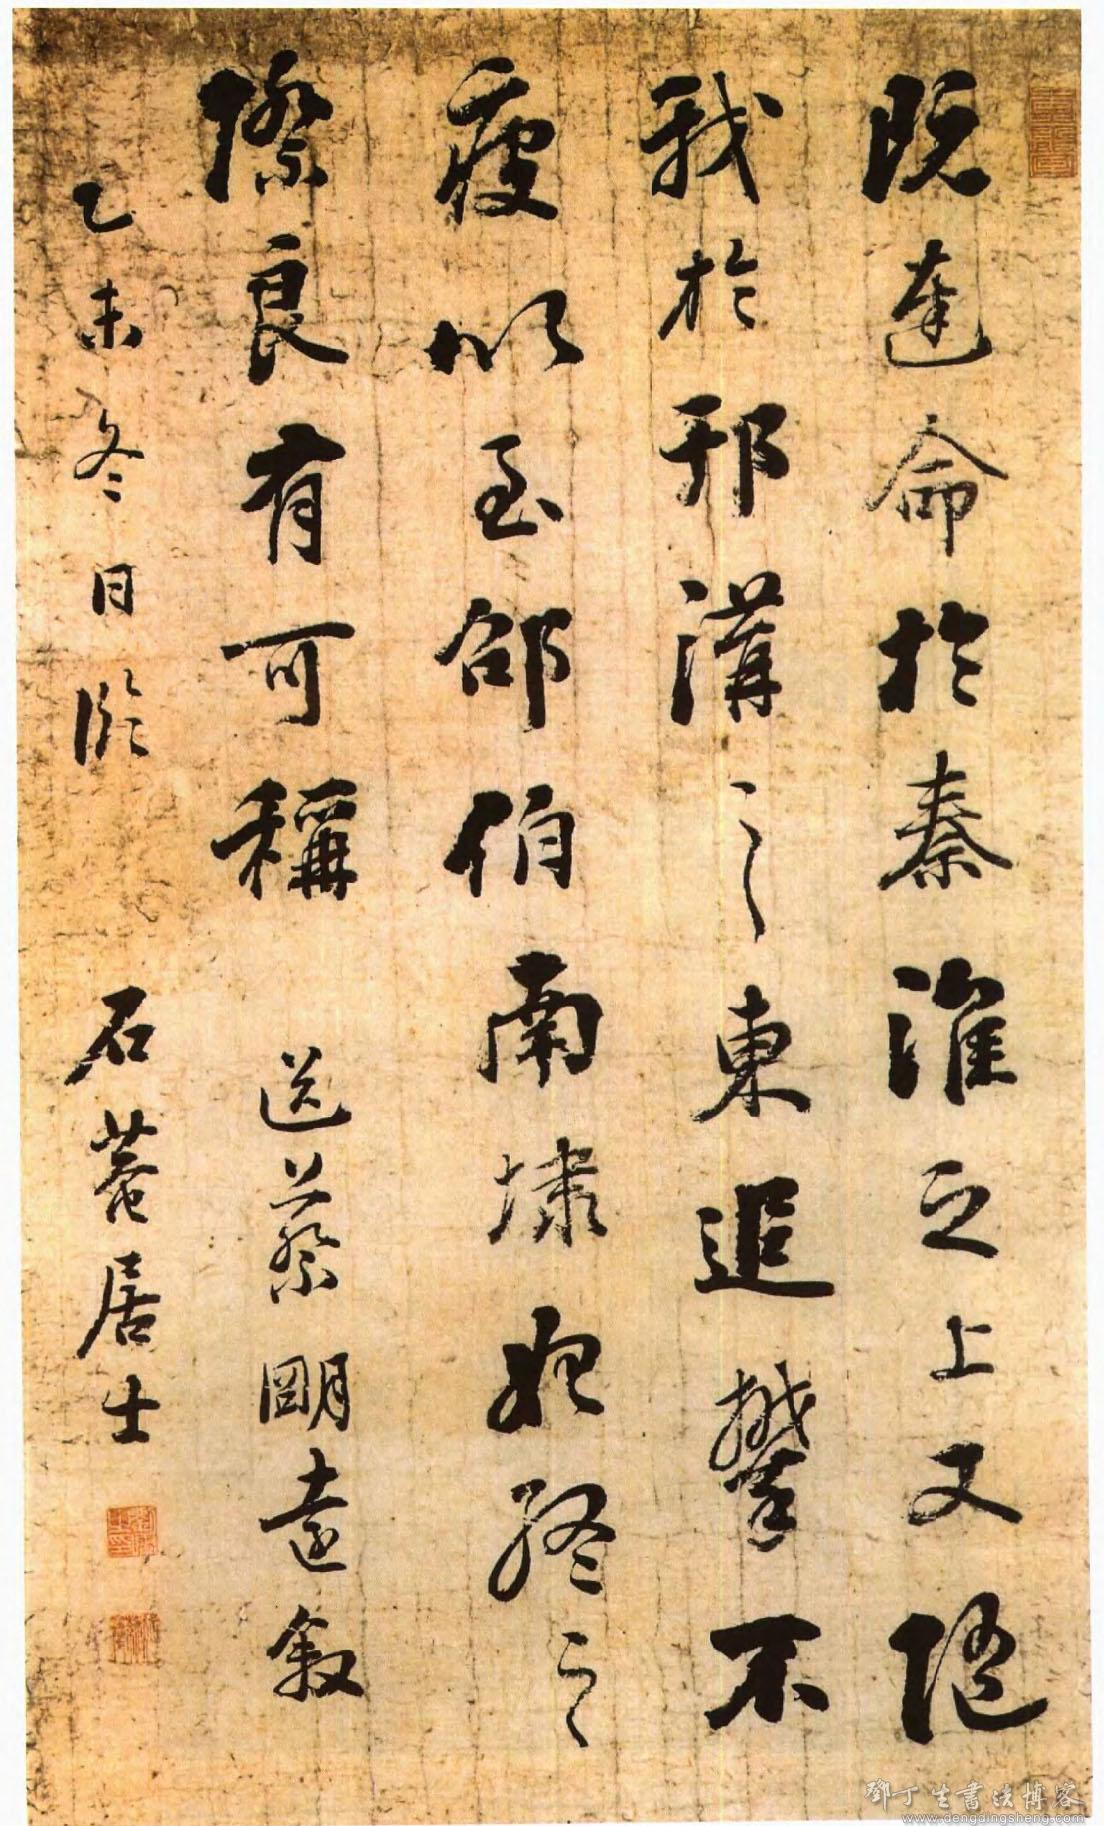 既達命於秦淮之上又隨
我於邗溝之東追攀不
疲以至邵伯南埭始終之
際良有可稱 送蔡明遠敘
乙未冬日臨 石菴居士
鄧丁生書法博客
www.dengdingsheng.com